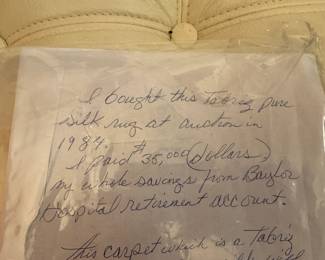 I bought this Tabriz pure
silk rug at auction in
1984.
I paid $35,000 (dollars)
my whole savings from Baylor
Hospital retirement account.
This carpet which is a Tabriz